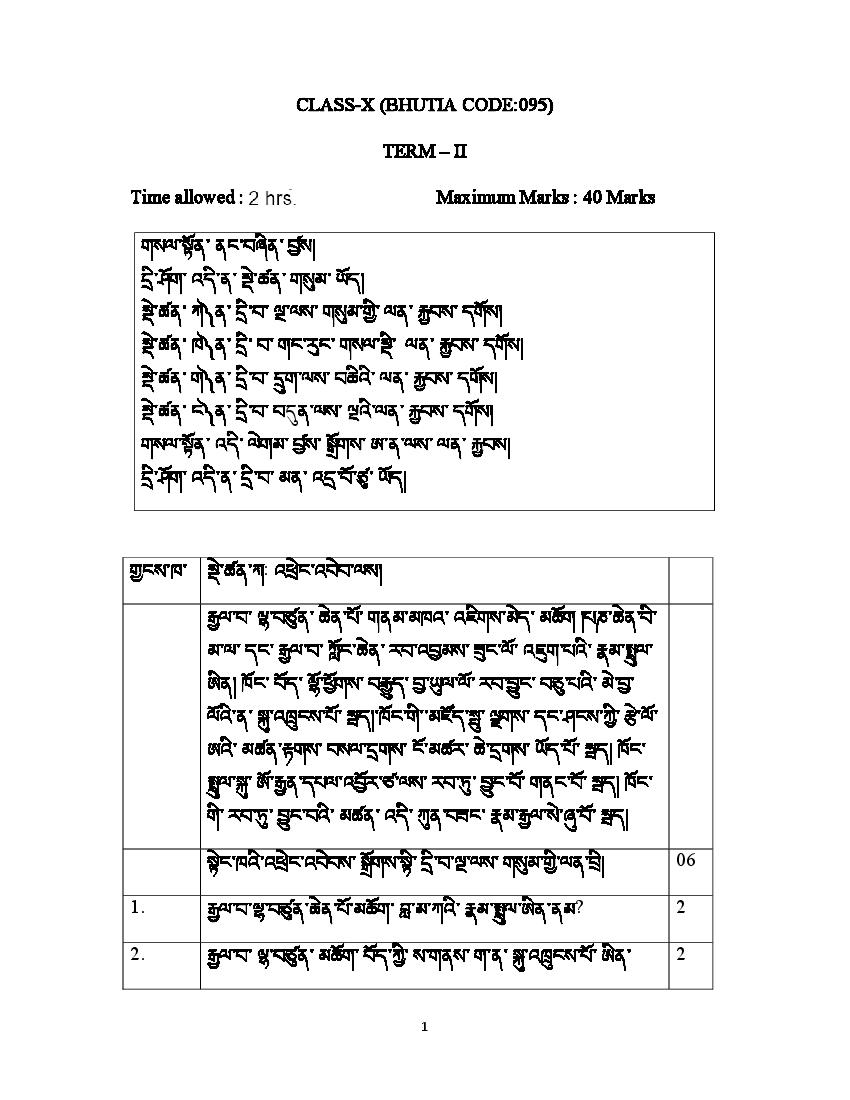 CLASS-X (BHUTIA CODE:095)
TERM – II
Time allowed : 2 hrs. Maximum Marks : 40 Marks
གསལ་སྟོན་ ནང་བཞིན་ བྱོས།
དྲི་ཤོག་ འདི་ན་ སྡེ་ཚན་ གསུམ་ ཡོད།
སྡེ་ཚན་ ཀ༽ན་ དྲི་བ་ ལྔ་ལས་ གསུམ་གྱི་ ལན་ རྐྱབས་ དགོས།
སྡེ་ཚན་ ཁ༽ན་ དྲི་ བ་ གང་རུང་ གསལ་སྡེ་ ལན་ རྐྱབས་ དགོས།
སྡེ་ཚན་ ག༽ན་ དྲི་བ་ དྲུག་ལས་ བཞིའི་ ལན་ རྐྱབས་ དགོས།
སྡེ་ཚན་ ང༽ན་ དྲི་བ་ བདུན་ལས་ ལྔའི་ལན་ རྐྱབས་ དགོས།
གསལ་སྟོན་ འདི་ ལེགམ་ བྱོས་ སྒྲོགས་ ཨ་ན་ལས་ ལན་ རྐྱབས།
དྲི་ཤོག་ འདི་ན་ དྲི་བ་ མན་ འདྲ་བོ་ཙུ་ ཡོད།
གྱངས་ཁ་ སྡེ་ཚན་ཀ: འཕྲེང་འབེབ་ལས།
རྒྱལ་བ་ ལྷ་བཙུན་ ཆེན་པོ་ གནམ་མཁའ་ འཇིགས་མེད་ མཆོག །པཎ་ཆེན་བི་
མ་ལ་ དང་ རྒྱལ་བ་ ཀློང་ཆེན་ རབ་འབྱམས་ ཟུང་ལོ་ འཇུག་པའི་ རྣམ་སྤྲུལ་
ཨིན། ཁོང་ བོད་ ལྷོ་ཕྱོགས་ བརྒྱུད་ བྱ་ཡུལ་ལོ་ རབ་བྱུང་ བཅུ་པའི་ མེ་བྱ་
ལོའི་ན་ སྐུ་འཁྲུངས་པོ་ སྦད། ཁོང་གི་ མཛོད་སྤུ་ ལྗགས་ དང་ཤངས་ཀྱི་ རྩེ་ལོ་
ཨའི་ མཚན་རྟགས་ བསལ་དྲགས་ ངོ་མཚར་ ཆེ་དྲགས་ ཡོད་པོ་ སྦད། ཁོང་
སྤྲུལ་སྐུ་ ཨོ་རྒྱན་དཔལ་འབྱོར་ཙ་ལས་ རབ་ཏུ་ བྱུང་བོ་ གནང་བོ་ སྦད། ཁོང་
གི་ རབ་ཏུ་ བྱུང་བའི་ མཚན་ འདི་ ཀུན་བཟང་ རྣམ་རྒྱལ་སེ་ཞུ་བོ་ སྦད།
སྟེང་ཁའི་འཕྲེང་འབེབས་ སྒྲོགས་སྟི་ དྲི་བ་ལྔ་ལས་ གསུམ་གྱི་ལན་བྲི། 06
1. རྒྱལ་བ་ལྷ་བཙུན་ཆེན་པོ་མཆོག་ བླ་མ་ཀའི་ རྣམ་སྤྲུལ་ཨིན་ནམ? 2
2. རྒྱལ་བ་ ལྷ་བཙུན་ མཆོག་ བོད་ཀྱི་ ས་གནས་ ག་ན་ སྐུ་འཁྲུངས་པོ་ ཨིན་ 2
1